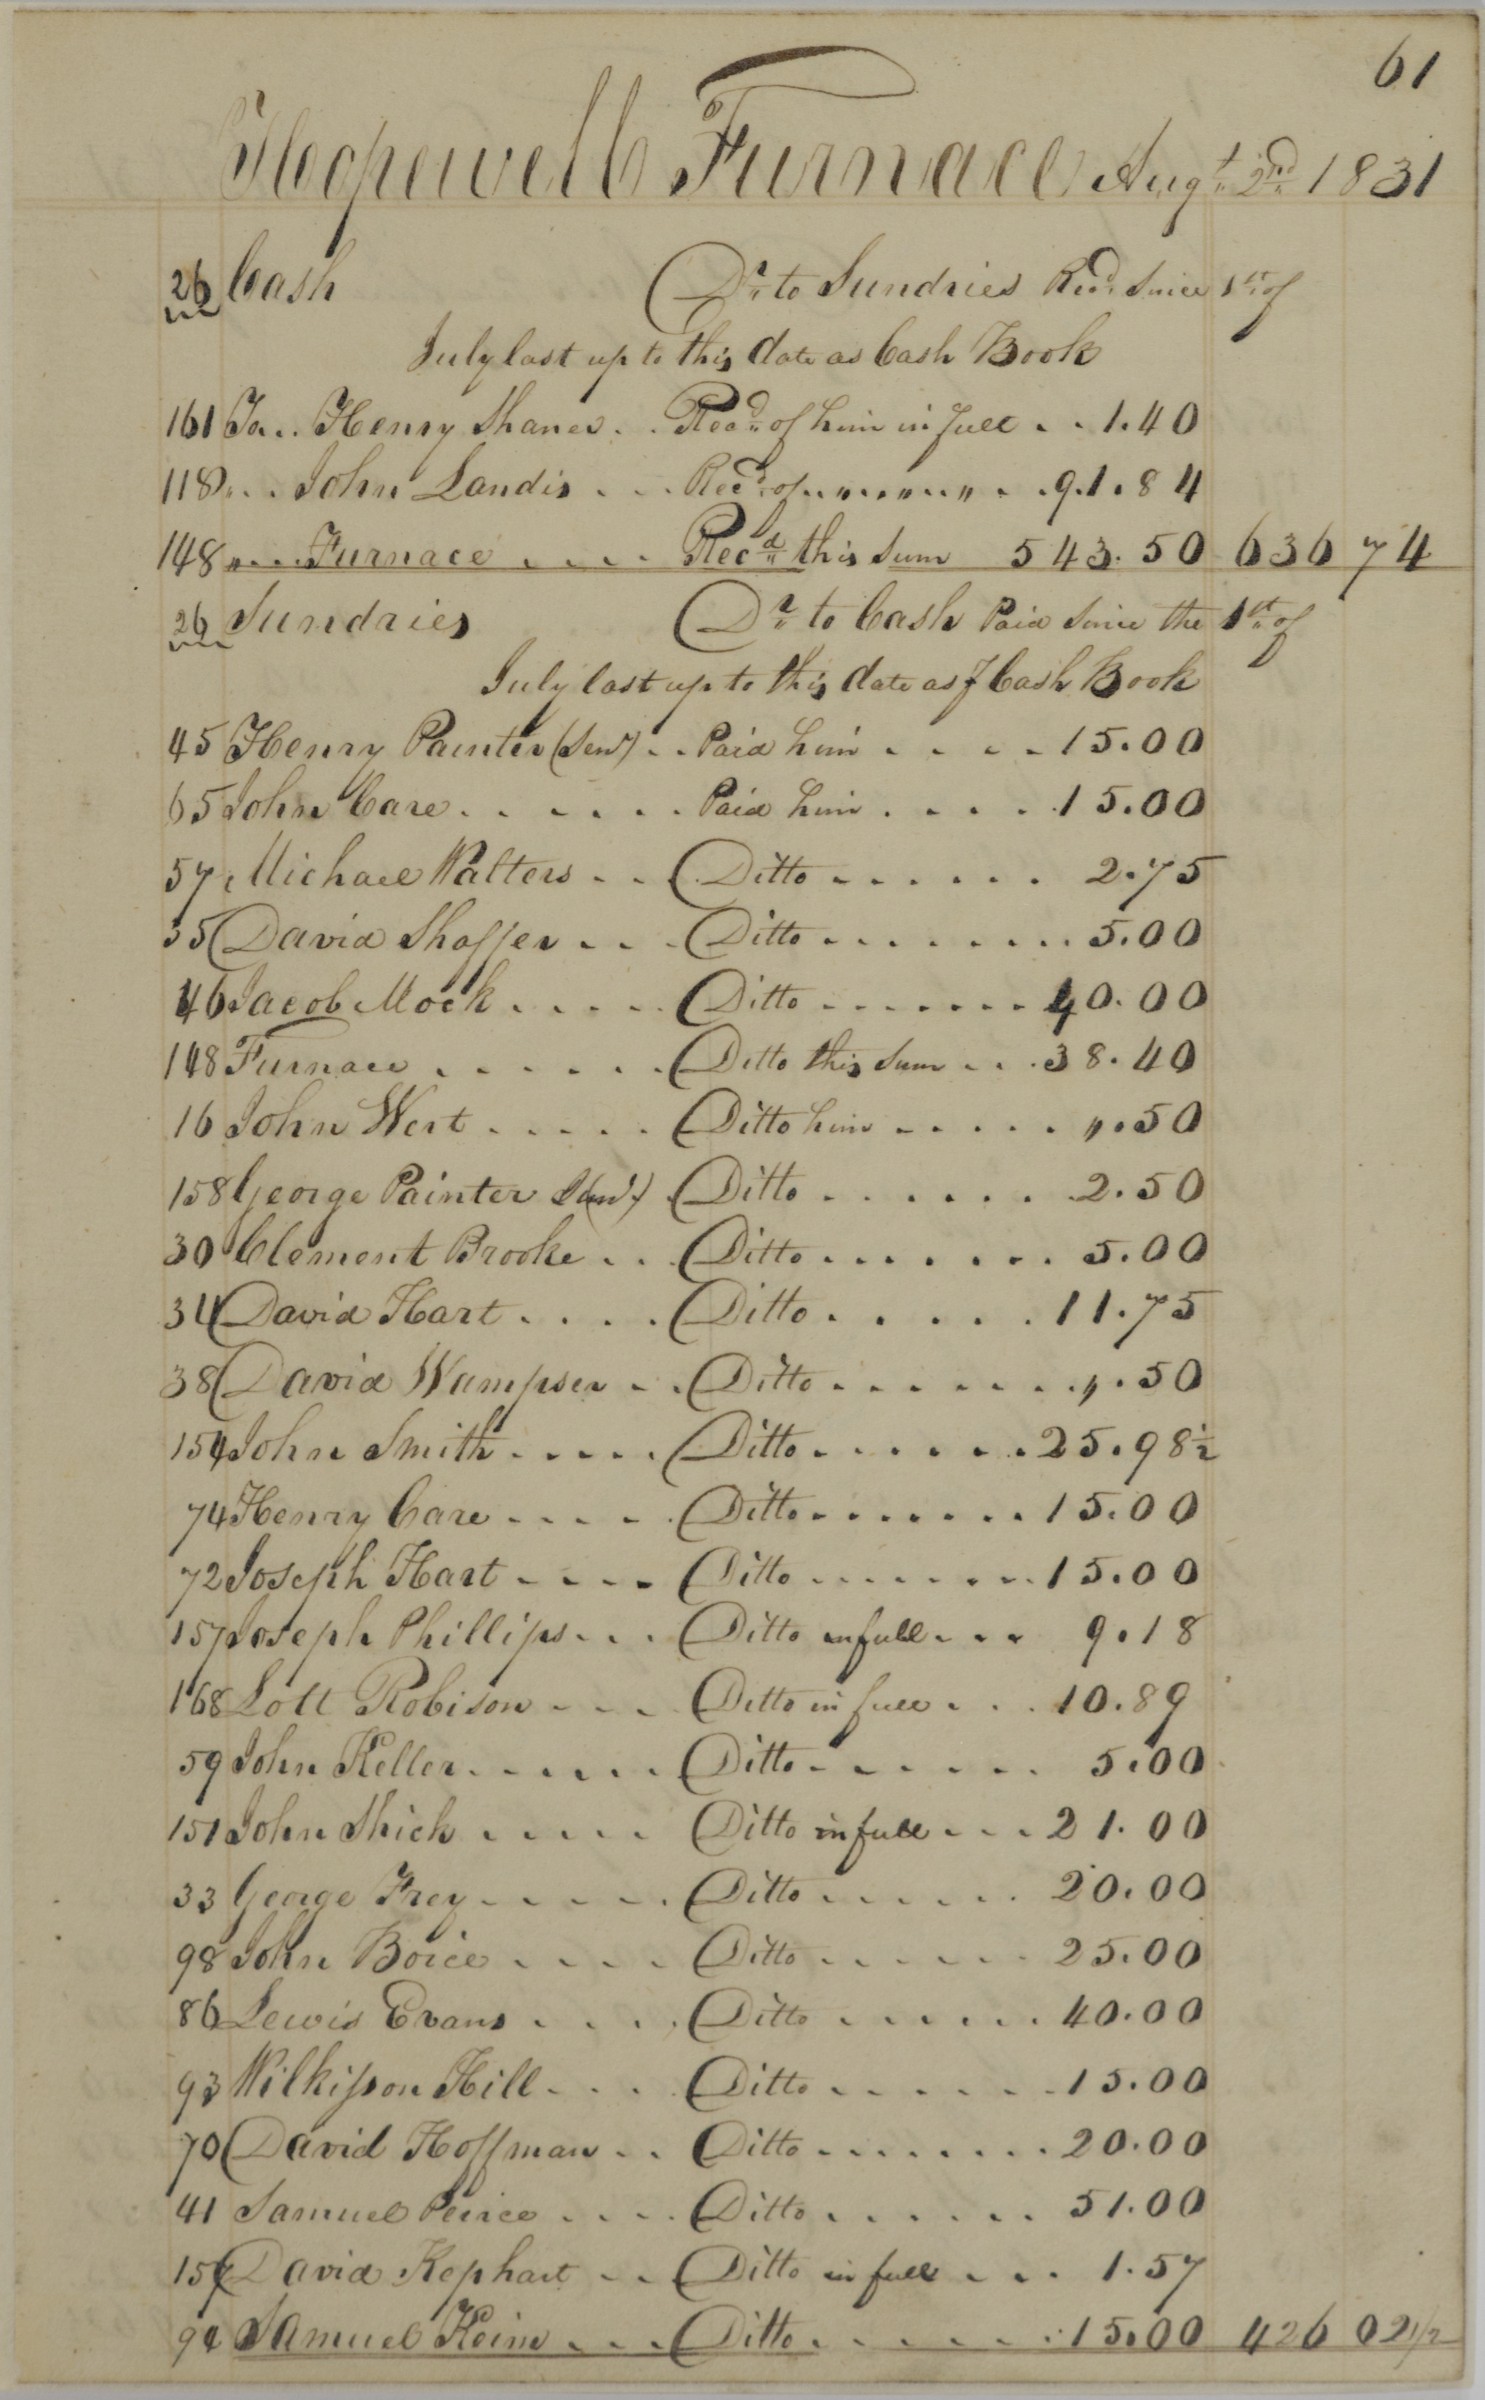 61
Hopewell Furnace Augt. 2nd 1831
26 Cash Dr. to Sundries Recd. Since 1st. of
July last up to this date as Cash Book
161 To .. Henry Shaner .. Recd. of him in full .. 1.40
118 " .. John Landis ... Recd. of " " " " " .. 91.84
148 " ... Furnace .... Recd. this Sum 543.50 636 74
26 Sundries Dr. to Cash Paid Since the 1st. of
July last up to this date as Cash Book
45 Henry Painter (Senr) .. Paid him .... 15.00
65 John Care ...... Paid him .... 15.00
57 Michael Walters .. Ditto ...... 2.75
35 David Shaffer ... Ditto ........ 5.00
46 Jacob Mock ..... Ditto ....... 40.00
148 Furnace ...... Ditto this Sum ... 38.40
16 John Wert ..... Ditto him ..... ".50
158 George Painter Senr. Ditto ....... 2.50
30 Clement Brooke .. Ditto ....... 5.00
34 David Hart .... Ditto ..... 11.75
38 David Wampser .. Ditto ....... ".50
154 John Smith ..... Ditto ....... 25.98½
74 Henry Care .... Ditto ....... 15.00
72 Joseph Hart .... Ditto ....... 15.00
157 Joseph Phillips ... Ditto in full ... 9.18
168 Lott Robison ... Ditto in full ... 10.89
59 John Keller ...... Ditto ...... 5.00
151 John Shick ..... Ditto in full ... 21.00
33 George Frey ..... Ditto ...... 20.00
98 John Boice .... Ditto ...... 25.00
86 Lewis Evans .... Ditto ...... 40.00
93 Wilkisson Hill ... Ditto ...... 15.00
70 David Hoffman .. Ditto ........ 20.00
41 Samuel Peirce .... Ditto ...... 51.00
157 David Kephart .. Ditto in full ... 1.57
94 Samuel Keim ... Ditto ...... 15.00 426 02½